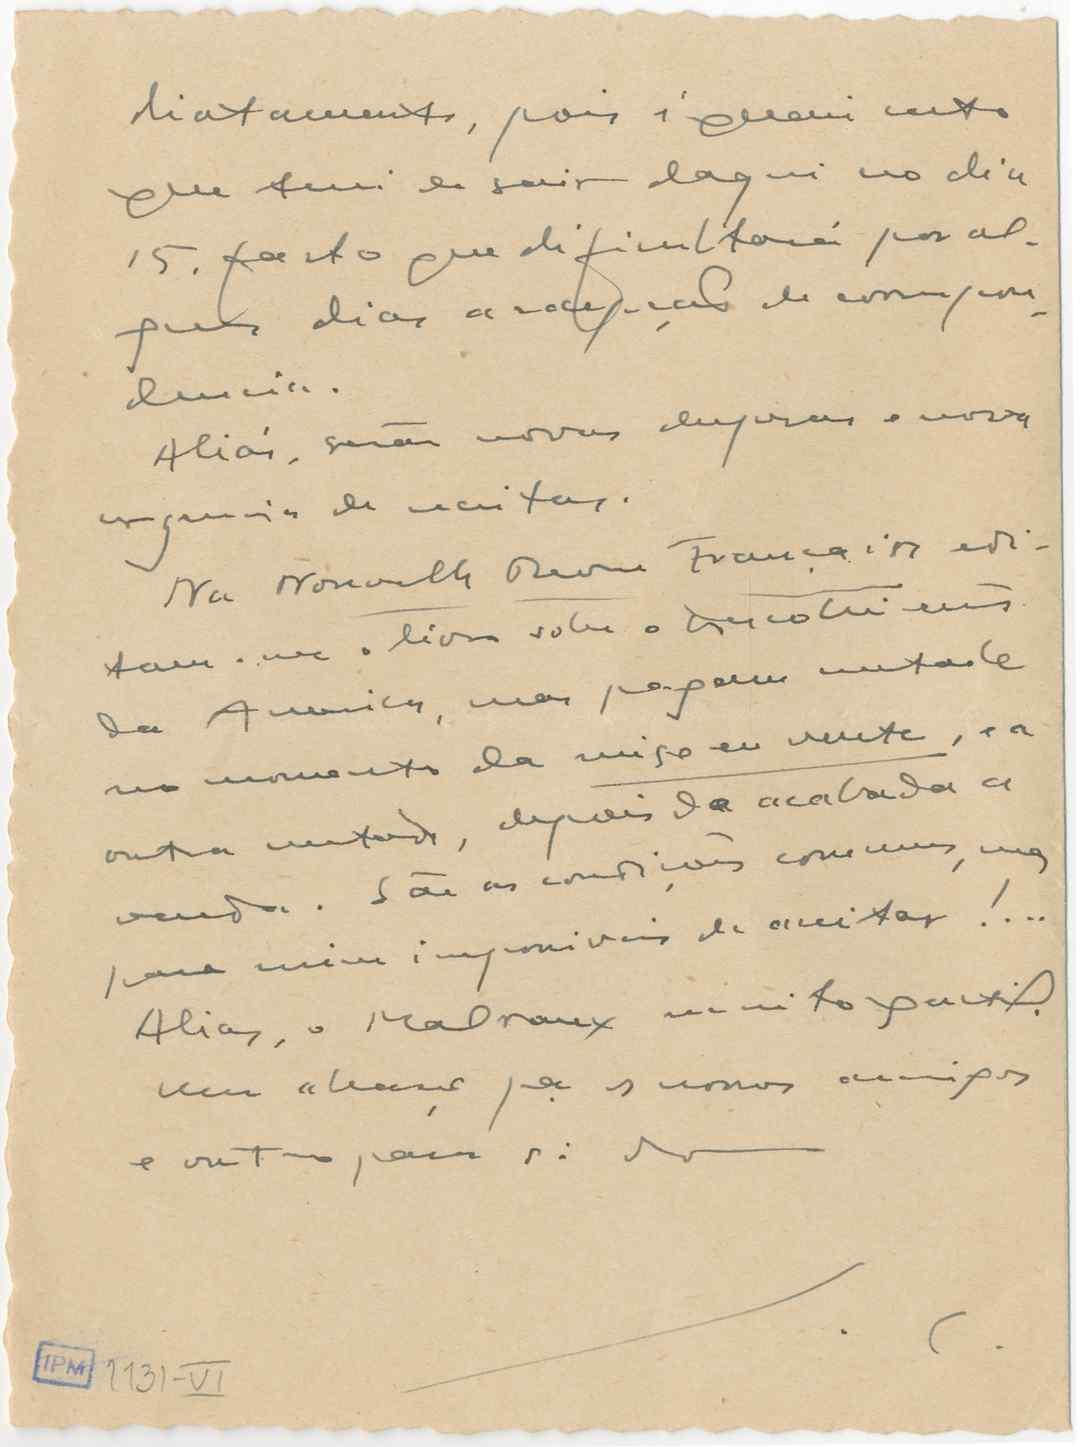 diatamente, pois é quasi certo
que terei de sair daqui no dia
15, facto que dificultará por al-
guns dias a recepção de correspon-
dencia.
Aliás, serão novas despesas e nova
urgencia de receitas.
Na Nouvelle Revue Française edi-
tam-me o livro sobre o Descobrimento
da America, mas pagam metade
no momento da mise en vente, e a
outra metade, depois da acabada a
venda. São as condições comuns, mas
para mim impossiveis de aceitar!...
Alias, o Malraux muito gentil.
Um abraço pa os nossos amigos
e outro para si do
. C.
IPM 1131-VI